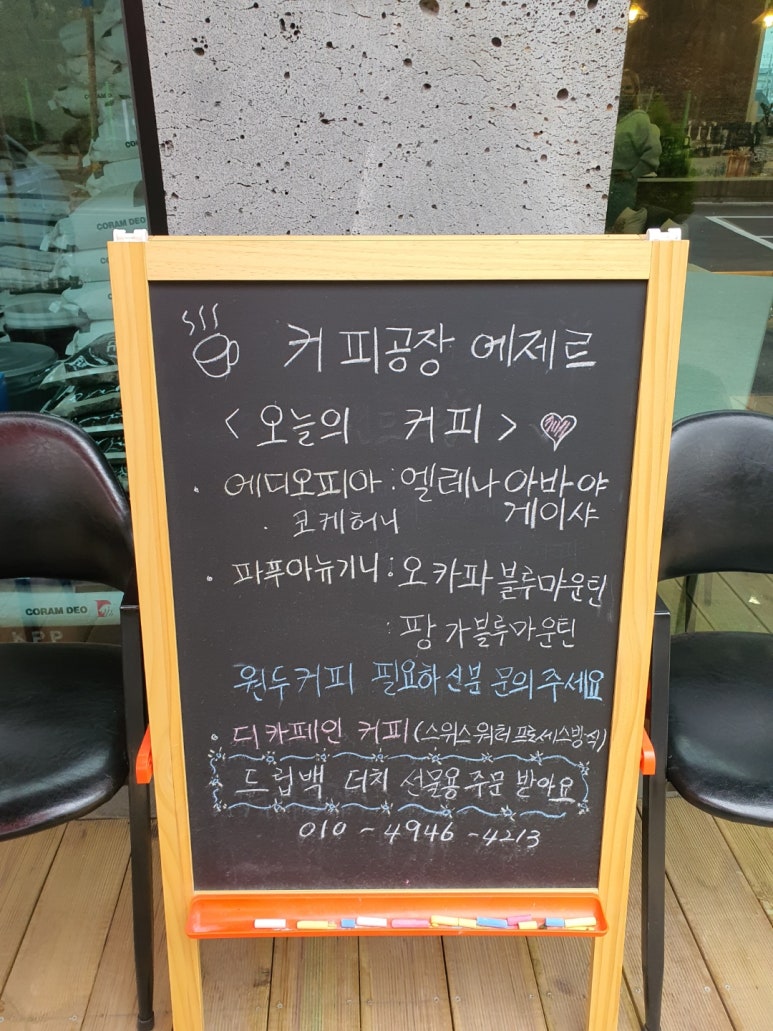 커피공장 에제르
<오늘의 커피>
· 에디오피아 : 엘레나 아바야
게이샤
· 코케허니
· 파푸아뉴기니 : 오카파 블루마운틴
: 팡가블루마운틴
원두커피 필요하신분 문의주세요
· 디카페인 커피 (스위스워터프로세스방식)
드립백 더치 선물용 주문 받아요
010-4946-4213
CORAM DEO
COR
CORAM DEO
KPP